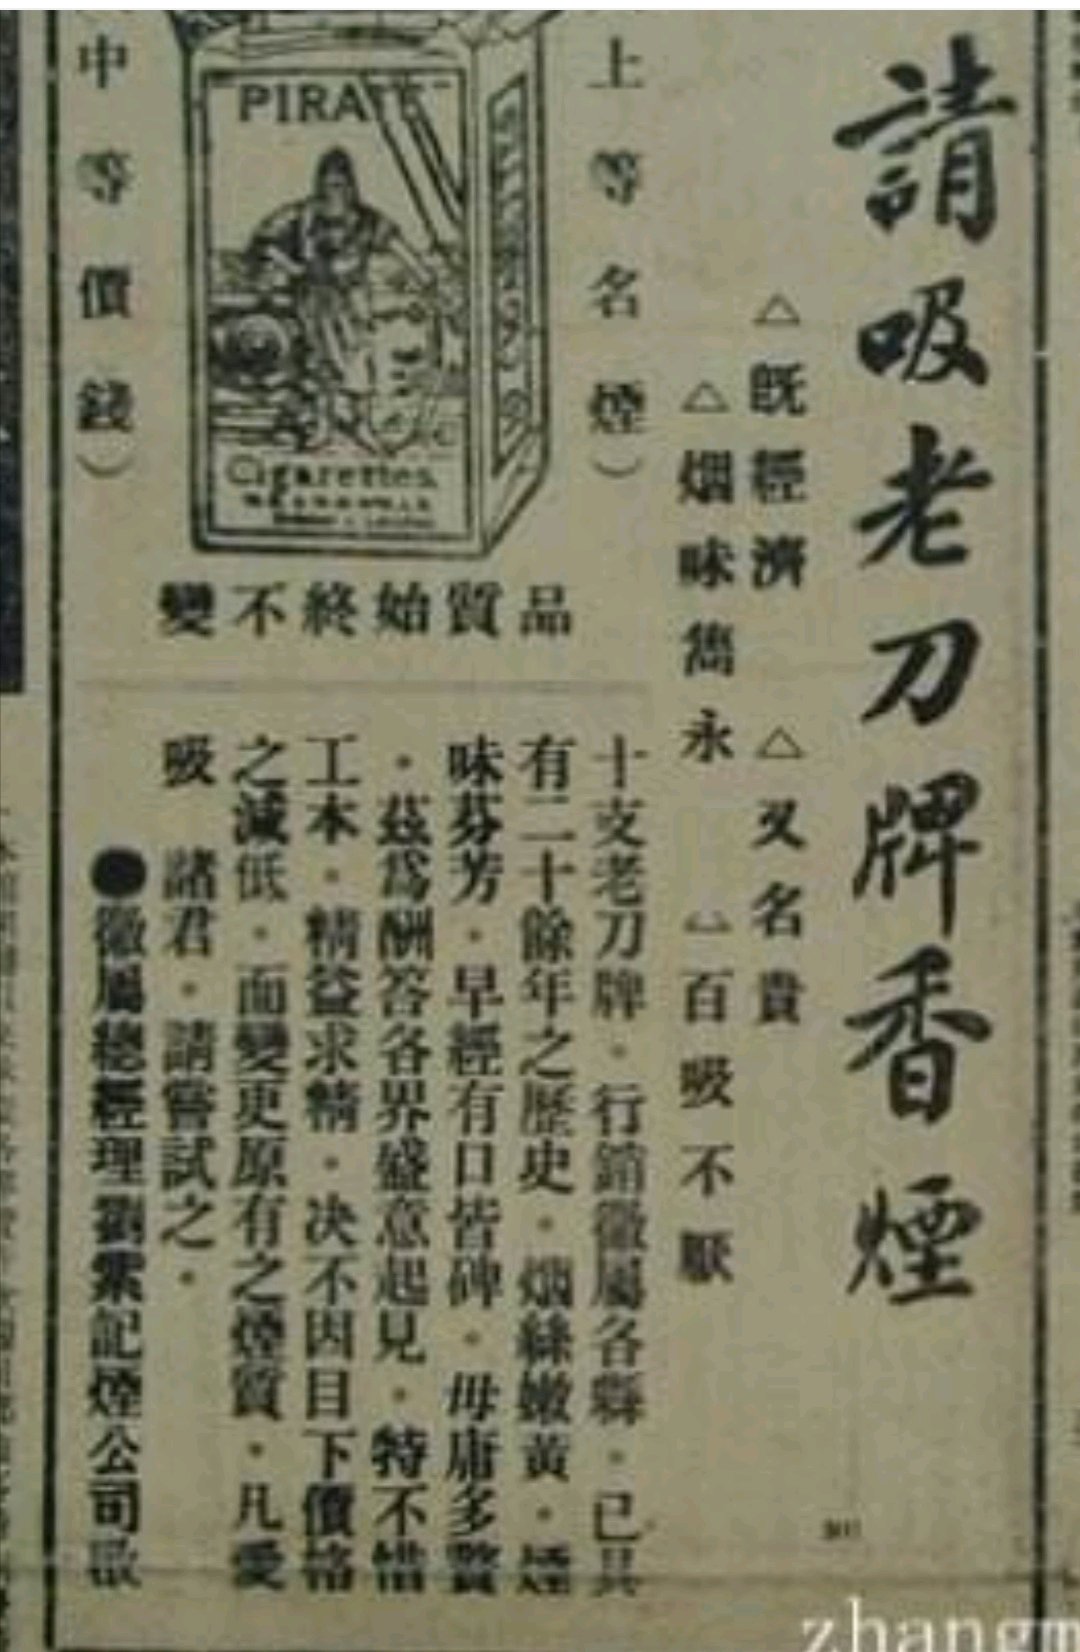 請吸老刀牌香煙
△既經濟 △又名貴
△烟味雋永 百吸不厭
上等名煙）
PIRATE
Cigarettes
中等價錢）
品質始終不變
十支老刀牌。行銷徽屬各縣。已具
有二十餘年之歷史。烟絲嫩黃。煙
味芬芳。早經有口皆碑。毋庸多贅
。茲爲酬答各界盛意起見。特不惜
工本。精益求精。决不因目下價格
之減低。而變更原有之煙質。凡愛
吸 諸君。請嘗試之。
●徽屬總經理劉紫記煙公司啟
zhang